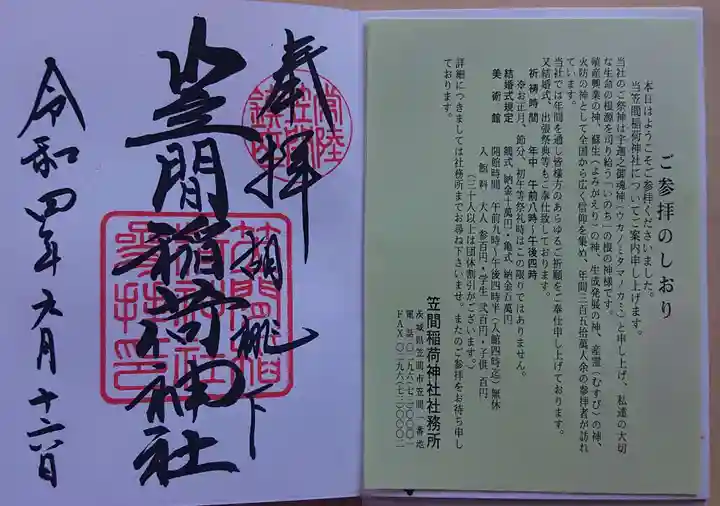 奉拝
胡桃下
笠間稲荷神社
令和四年六月十六日
ご参拝のしおり
本日はようこそご参拝くださいました。
当笠間稲荷神社についてご案内申し上げます。
当社のご祭神は宇迦之御魂神（ウカノミタマノカミ）と申し上げ、私達の大切
な生命の根源を司り給う「いのち」の根の神様です。
殖産興業の神、蘇生（よみがえり）の神、生成発展の神、産霊（むすび）の神、
火防の神として全国から広く信仰を集め、年間三百五拾萬人余の参拝者が訪れ
ています。
当社では年間を通し皆様方のあらゆるご祈願をご奉仕申し上げております。
又結婚式、出張祭典等もご奉仕致しております。
祈祷時間 年中 午前八時～午後四時
☆お正月、節分、初午等祭礼時はこの限りではありません。
結婚式規定 鶴式 納金十萬円・亀式 納金五萬円
美術館 開館時間 午前九時～午後四時半（入館四時迄）無休
入館料 大人 参百円・学生 弐百円・子供 百円
（三十人以上は団体割引がございます。）
詳細につきましては社務所までお尋ね下さいませ。またのご参拝をお待ち申し
ております。
笠間稲荷神社社務所
茨城県笠間市笠間一番地
電話 〇二九六-七三-〇〇〇一
FAX 〇二九六-七三-〇〇〇二